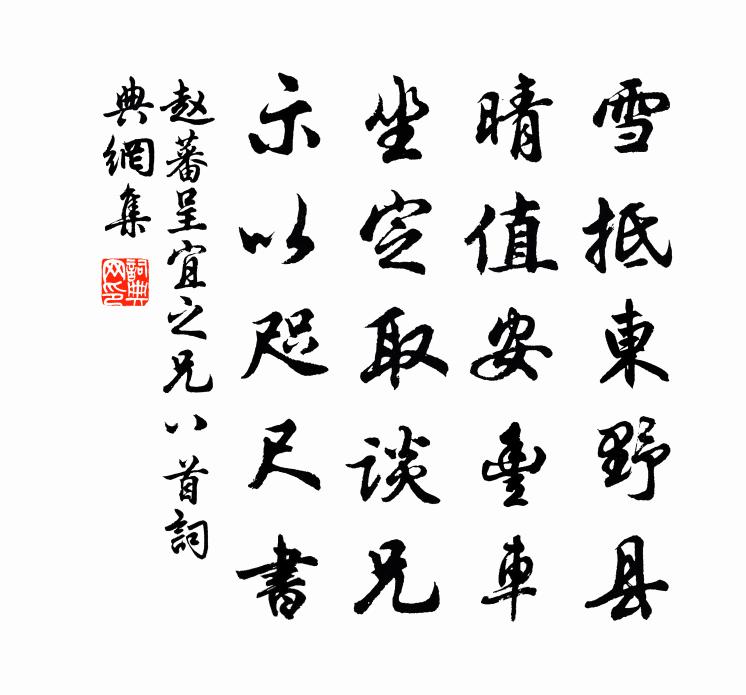 雪抵東野县
晴值安豊車
坐定取談兄
示以咫尺書
赵蕃呈宜之兄八首詞
典網集
詞典
网印